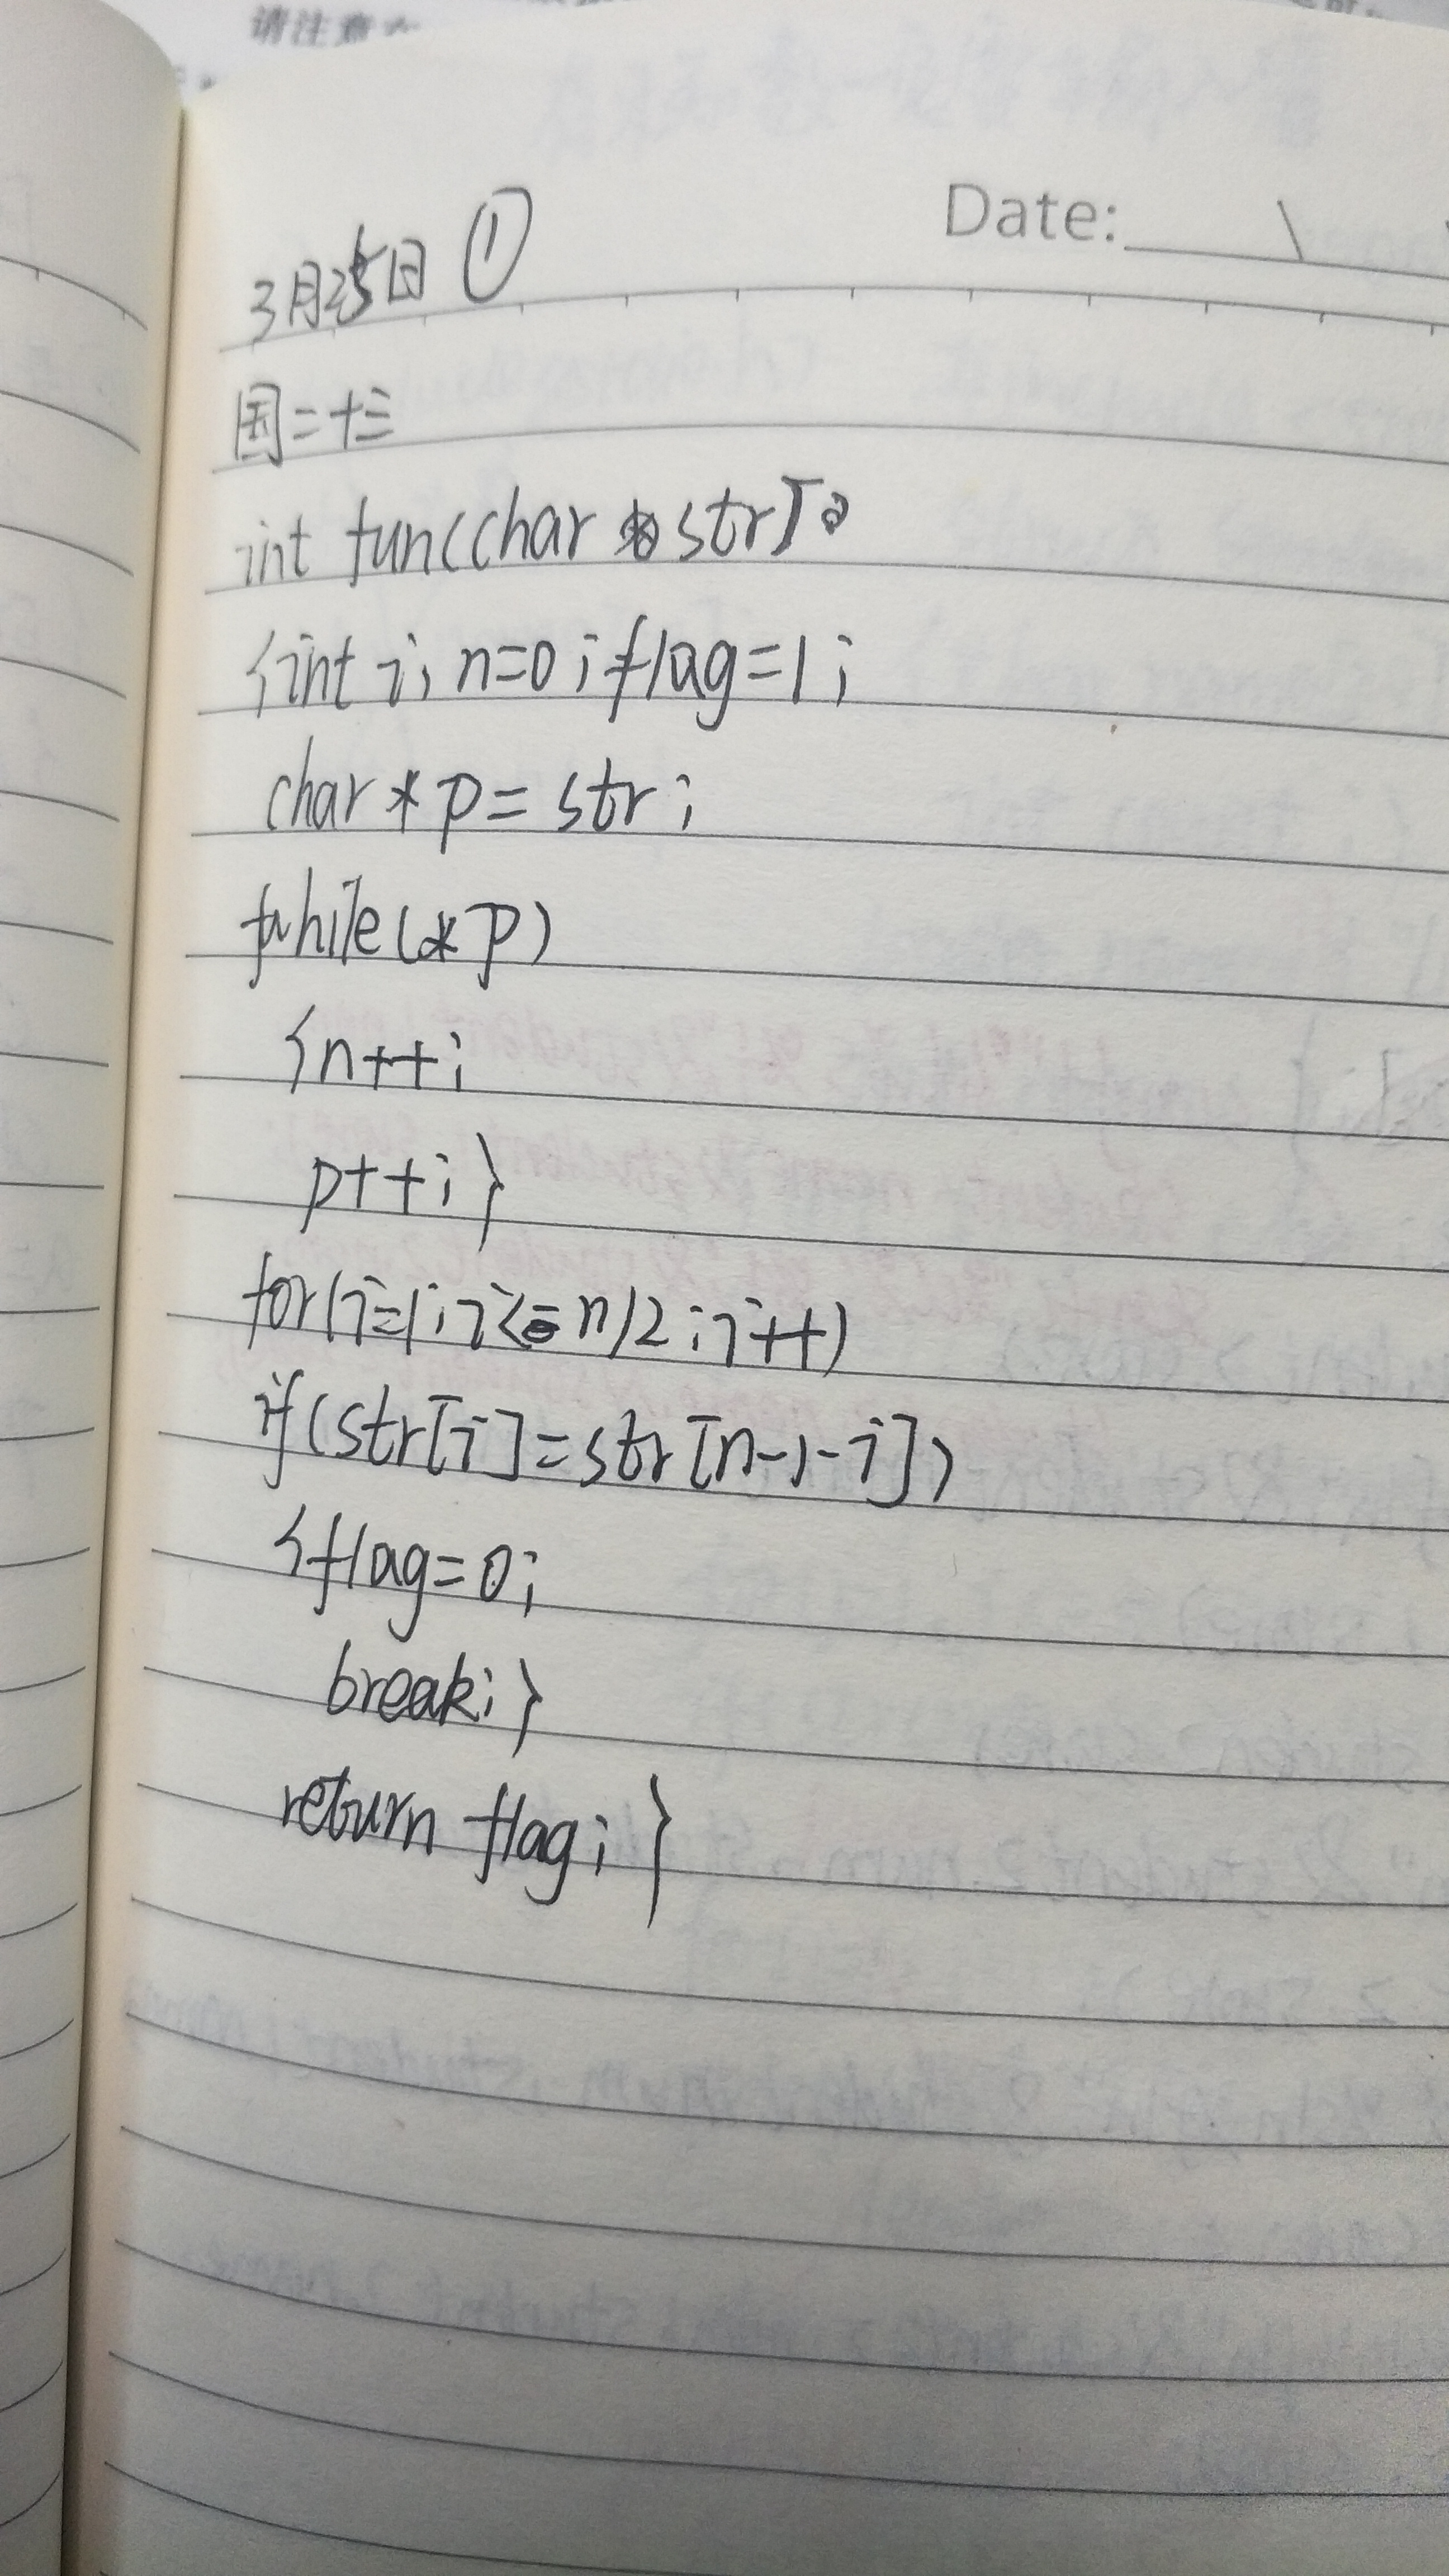 请注意
Date:
3月25日 ①
国二十三
int fun(char *str)
{int i, n=0; flag=1;
char * p = str;
while(*p)
{n++;
p++;}
for(i=1;i<=n/2;i++)
if(str[i]=str[n-1-i])
{flag=0;
break;}
return flag; }